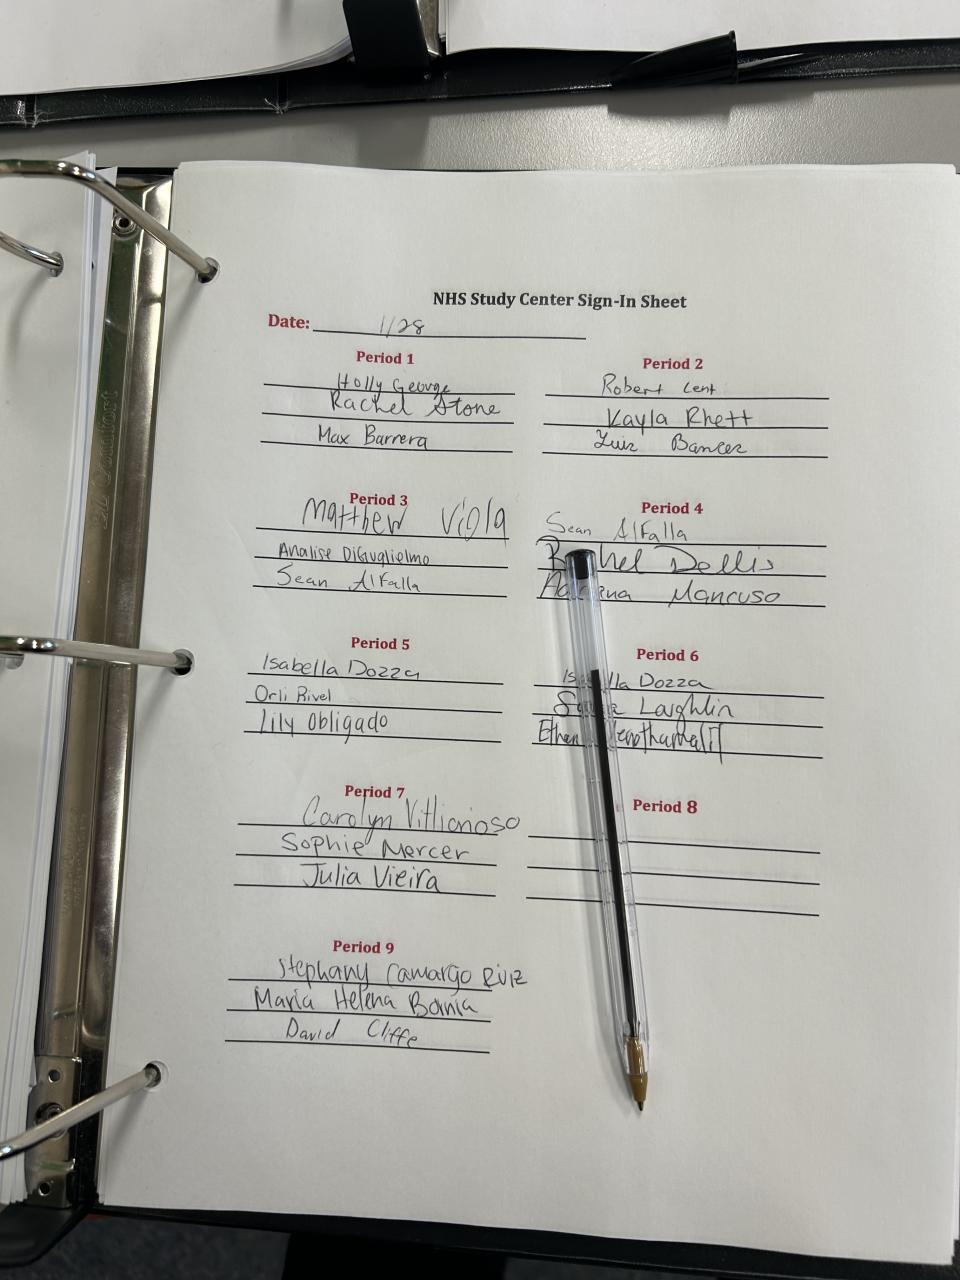 NHS Study Center Sign-In Sheet
Date: 1/28
Period 1
Holly George
Rachel Stone
Max Barrera
Period 2
Robert Lent
Kayla Rhett
Luiz
Period 3
Matthew Viola
Analise DiGuglielmo
Sean AlFalla
Period 4
Sean AlFalla
Dellis
Mancuso
Period 5
Isabella Dozza
Orli Rivel
Lily Obligado
Period 6
Dozza
Laughlin
Ethan
Period 7
Carolyn
Sophie Mercer
Julia Vieira
Period 8
Period 9
Stephany Camargo Ruiz
Maria Helena Bornia
David Cliffe